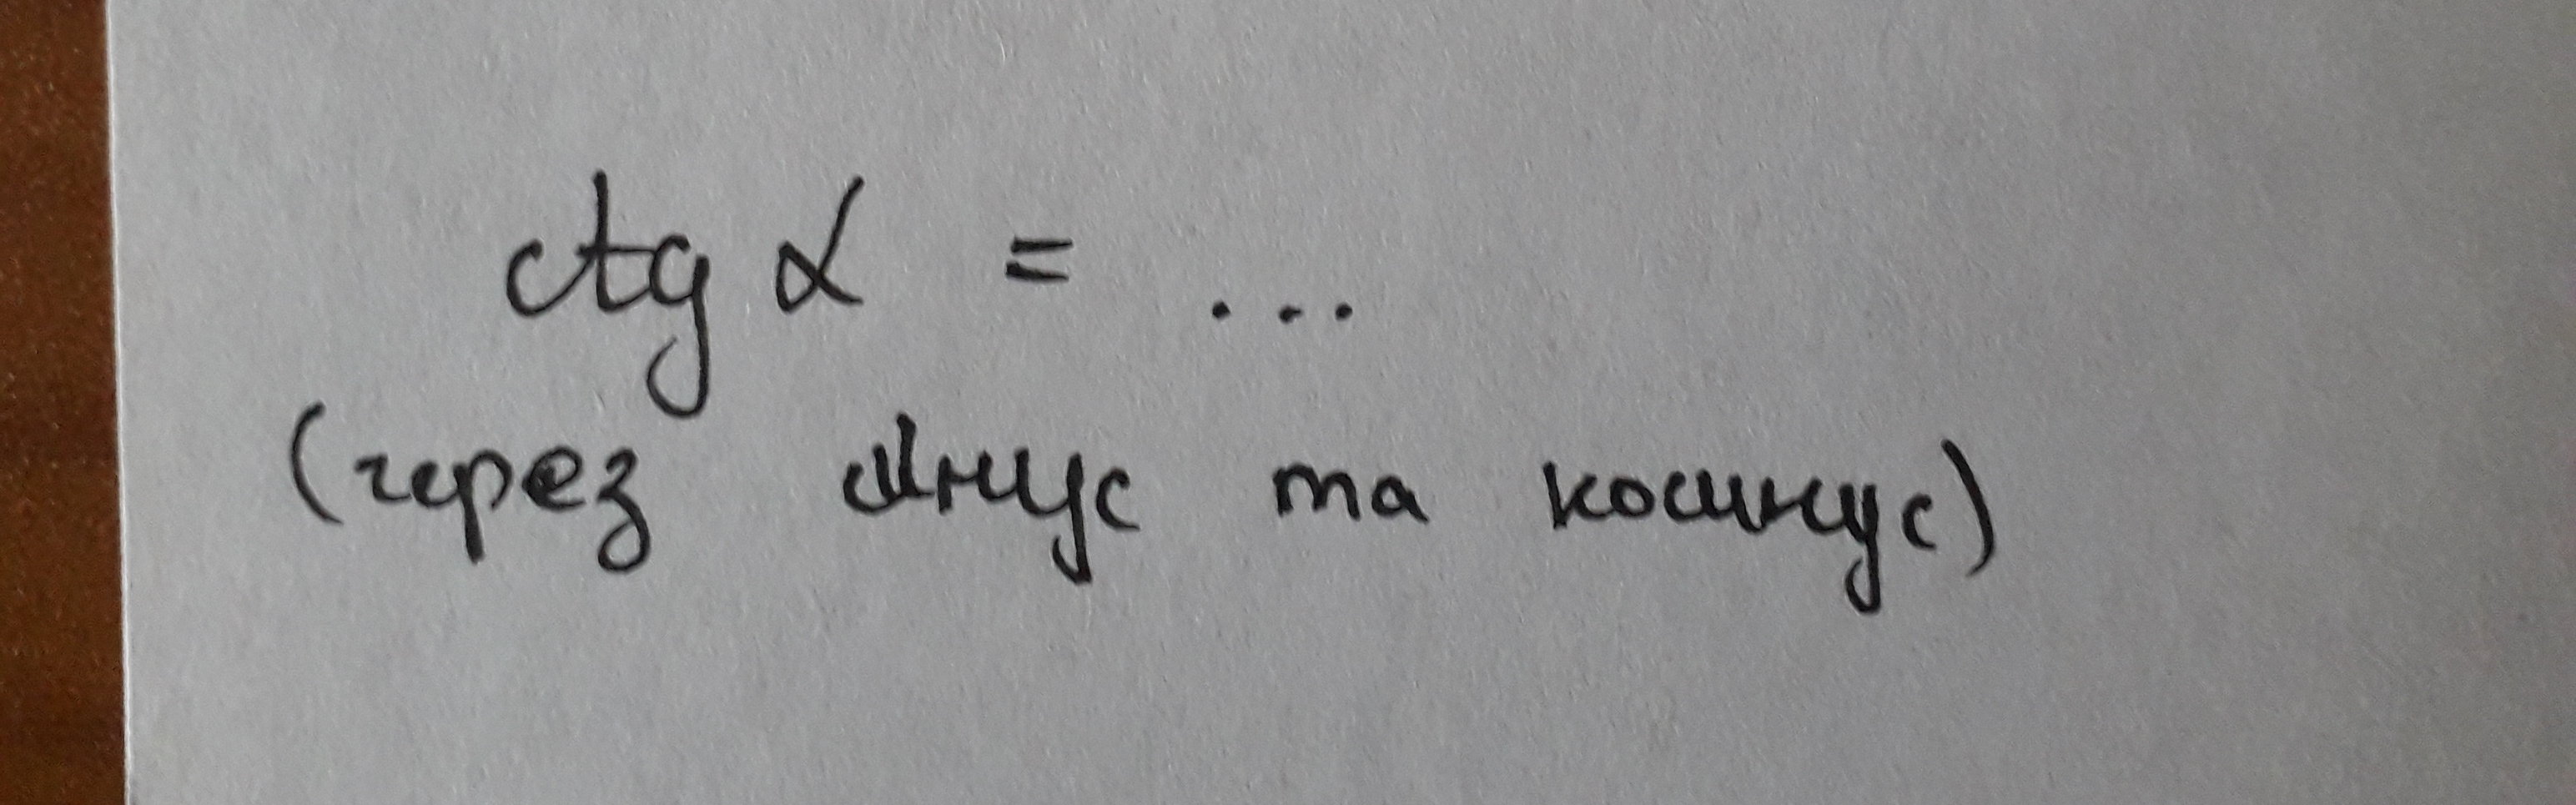 ctg α = ...
(через синус та косинус)